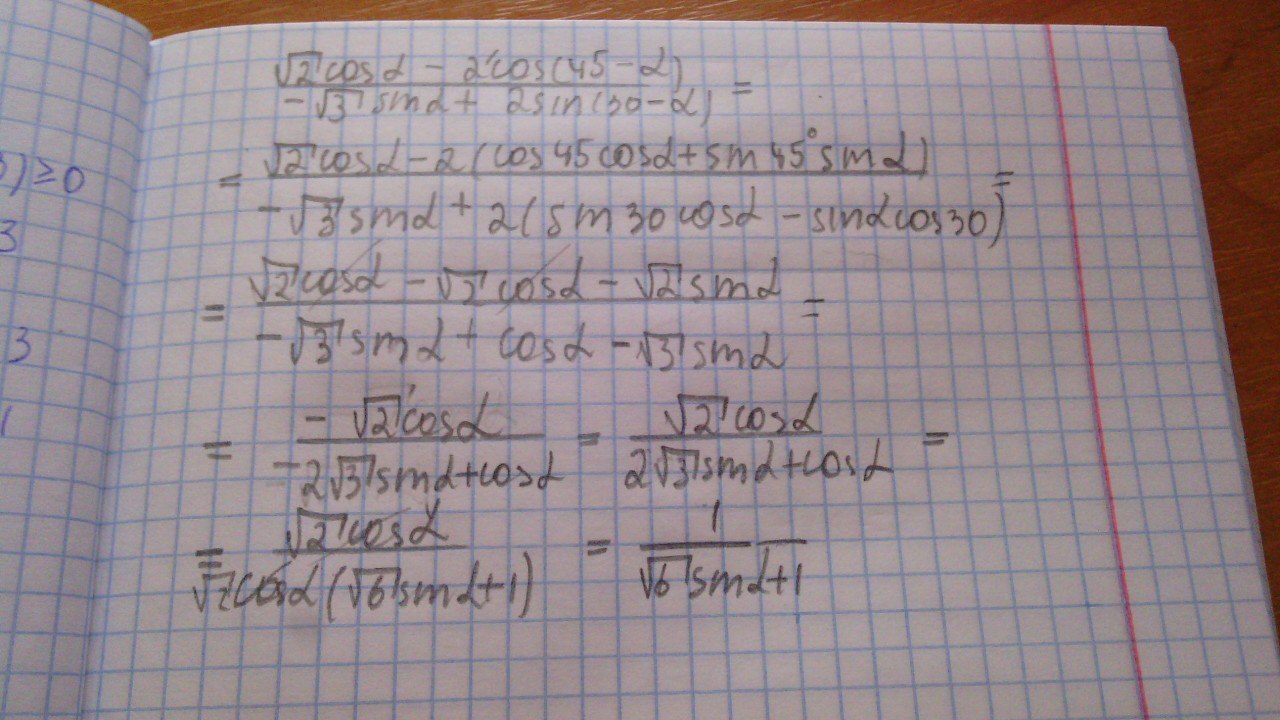 √2 cosα − 2cos(45−α)
−√3 sinα + 2sin(30−α) =
= √2 cosα − 2(cos45cosα + sin45° sinα) =
−√3 sinα + 2(sin30cosα − sinαcos30)
= √2 cosα − √2 cosα − √2 sinα =
−√3 sinα + cosα − √3 sinα
= −√2 cosα = √2 cosα =
−2√3 sinα + cosα 2√3 sinα + cosα
= √2 cosα = 1
√2 cosα (√6 sinα + 1) √6 sinα + 1
) ≥ 0
3
3
1